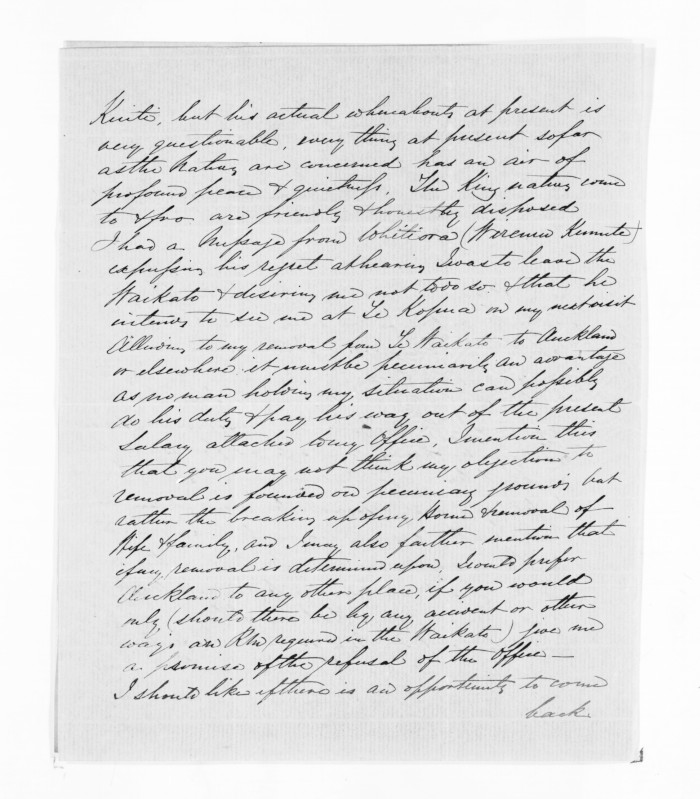 Kuiti, but his actual whereabouts at present is
very questionable, every thing at present so far
as the Natives are concerned has an air of
profound peace & quietness. The King natives come
to & fro are friendly & honestly disposed
I had a Message from Whitiora (Wiremu Kumete)
expressing his regret at hearing I was to leave the
Waikato & desiring me not to do so & that he
intends to see me at Te Kopua on my next visit
Alluding to my removal from Te Waikato to Auckland
or elsewhere it must be pecuniarily an advantage
as no man holding my situation can possibly
do his duty & pay his way out of the present
Salary attached to my Office, I mention this
that you may not think my objection to
removal is founded on pecuniary grounds but
rather the breaking up of my Home & removal of
Wife & family, and I may also further mention that
if my removal is determined upon, I would prefer
Auckland to any other place, if you would
only, (should there be by any accident or other
ways an RM required in the Waikato) give me
a promise of the refusal of the Office —
I should like if there is an opportunity to come
back